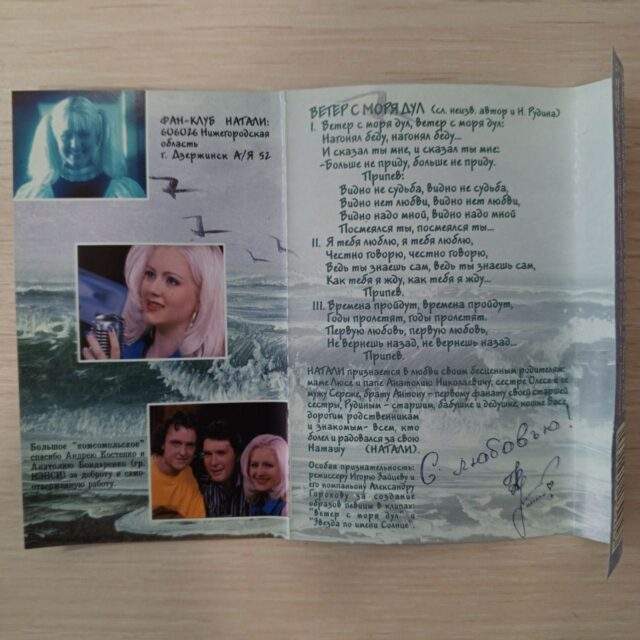 ФАН-КЛУБ НАТАЛИ:
606026 Нижегородская
область
г. Дзержинск А/Я 52
Большое "комсомольское"
спасибо Андрею Костенко и
Анатолию Бондаренко (гр.
НЭНСИ) за доброту и само-
отверженную работу.
ВЕТЕР С МОРЯ ДУЛ (сл. неизв. автор и Н. Рудина)
I. Ветер с моря дул, ветер с моря дул:
Нагонял беду, нагонял беду...
И сказал ты мне, и сказал ты мне:
-Больше не приду, больше не приду.
Припев:
Видно не судьба, видно не судьба,
Видно нет любви, видно нет любви,
Видно надо мной, видно надо мной
Посмеялся ты, посмеялся ты...
II. Я тебя люблю, я тебя люблю,
Честно говорю, честно говорю,
Ведь ты знаешь сам, ведь ты знаешь сам,
Как тебя я жду, как тебя я жду...
Припев.
III. Времена пройдут, времена пройдут,
Годы пролетят, годы пролетят.
Первую любовь, первую любовь,
Не вернешь назад, не вернешь назад...
Припев.
НАТАЛИ признается в любви своим бесценным родителям:
маме Люсе и папе Анатолию Николаевичу, сестре Олесе и ее
мужу Сереже, брату Антону - первому фанату своей старшей
сестры, Рудиным - старшим, бабушке и дедушке, кошке Васе,
дорогим родственникам
и знакомым- всем, кто
болел и радовался за свою
Наташу (НАТАЛИ).
Особая признательность:
режиссеру Игорю Зайцеву и
его компаньону Александру
Горохову за создание
образов певицы в клипах:
"Ветер с моря дул" и
"Звезда по имени Солнце".
С любовью!